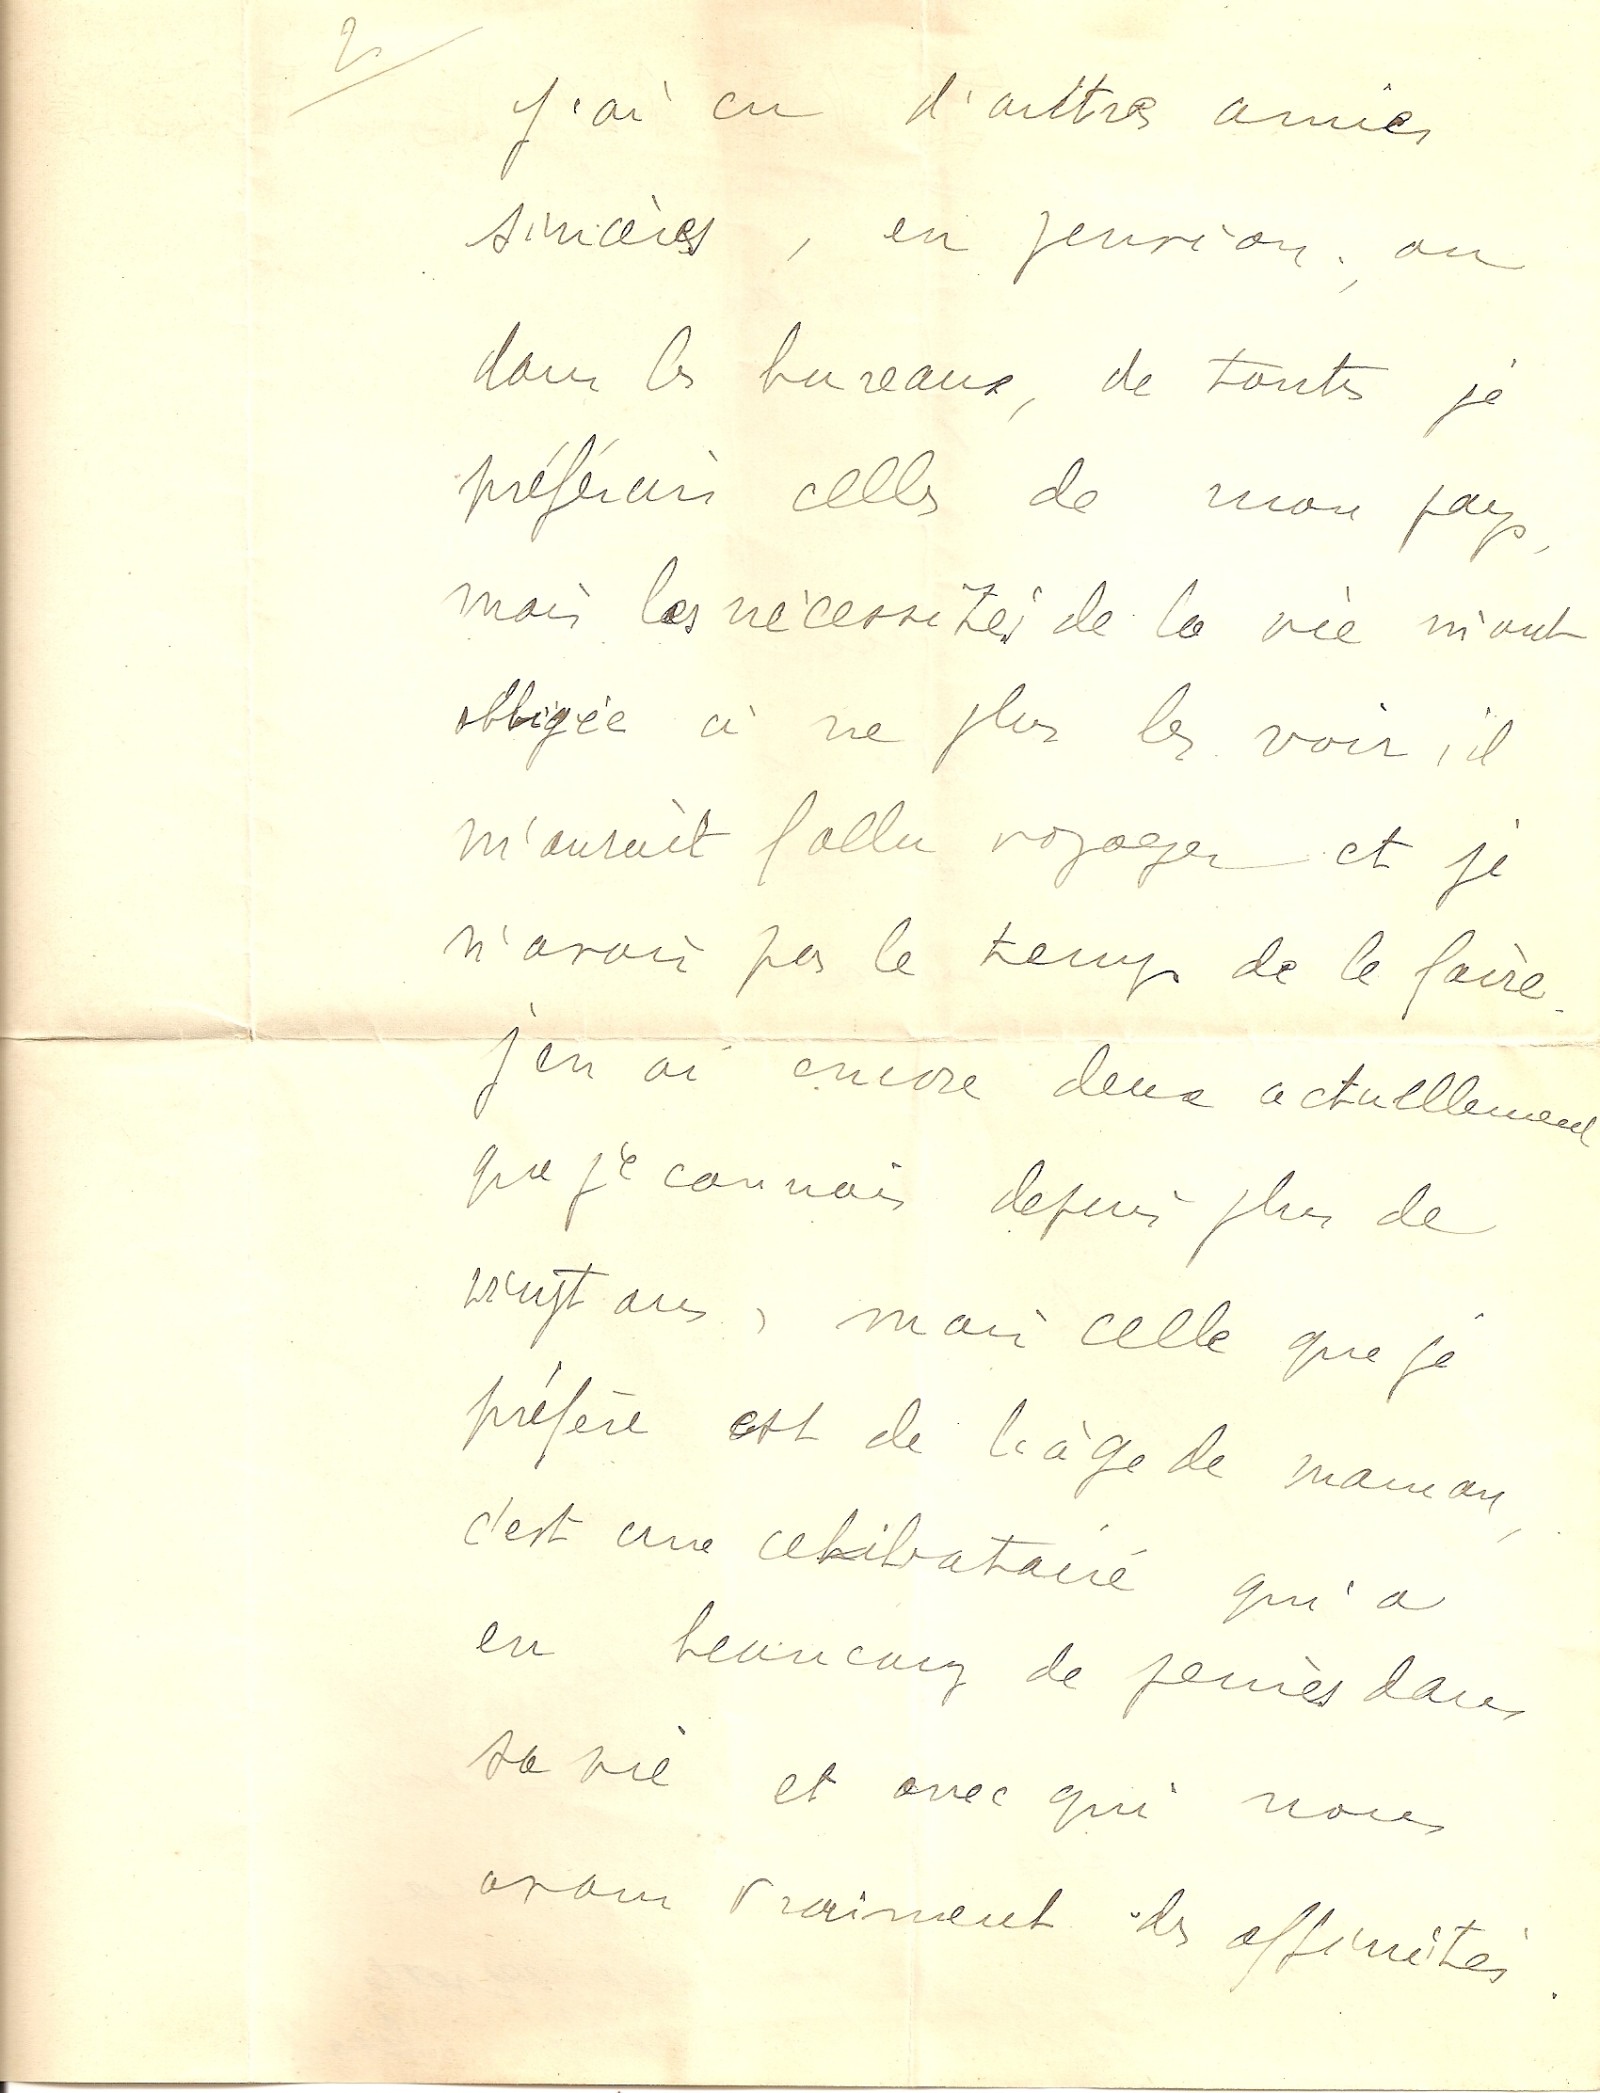 2
J'ai eu d'autres amies
sincères, en pension, ou
dans les bureaux, de toutes je
préférais celles de mon pays,
mais les nécessités de la vie m'ont
obligée à ne plus les voir, il
m'aurait fallu voyager et je
n'avais pas le temps de le faire.
J'en ai encore deux actuellement
que je connais depuis plus de
vingt ans, mais celle que je
préfère est de l'âge de maman,
c'est une célibataire qui a
eu beaucoup de peines dans
sa vie et avec qui nous
avons vraiment des affinités.